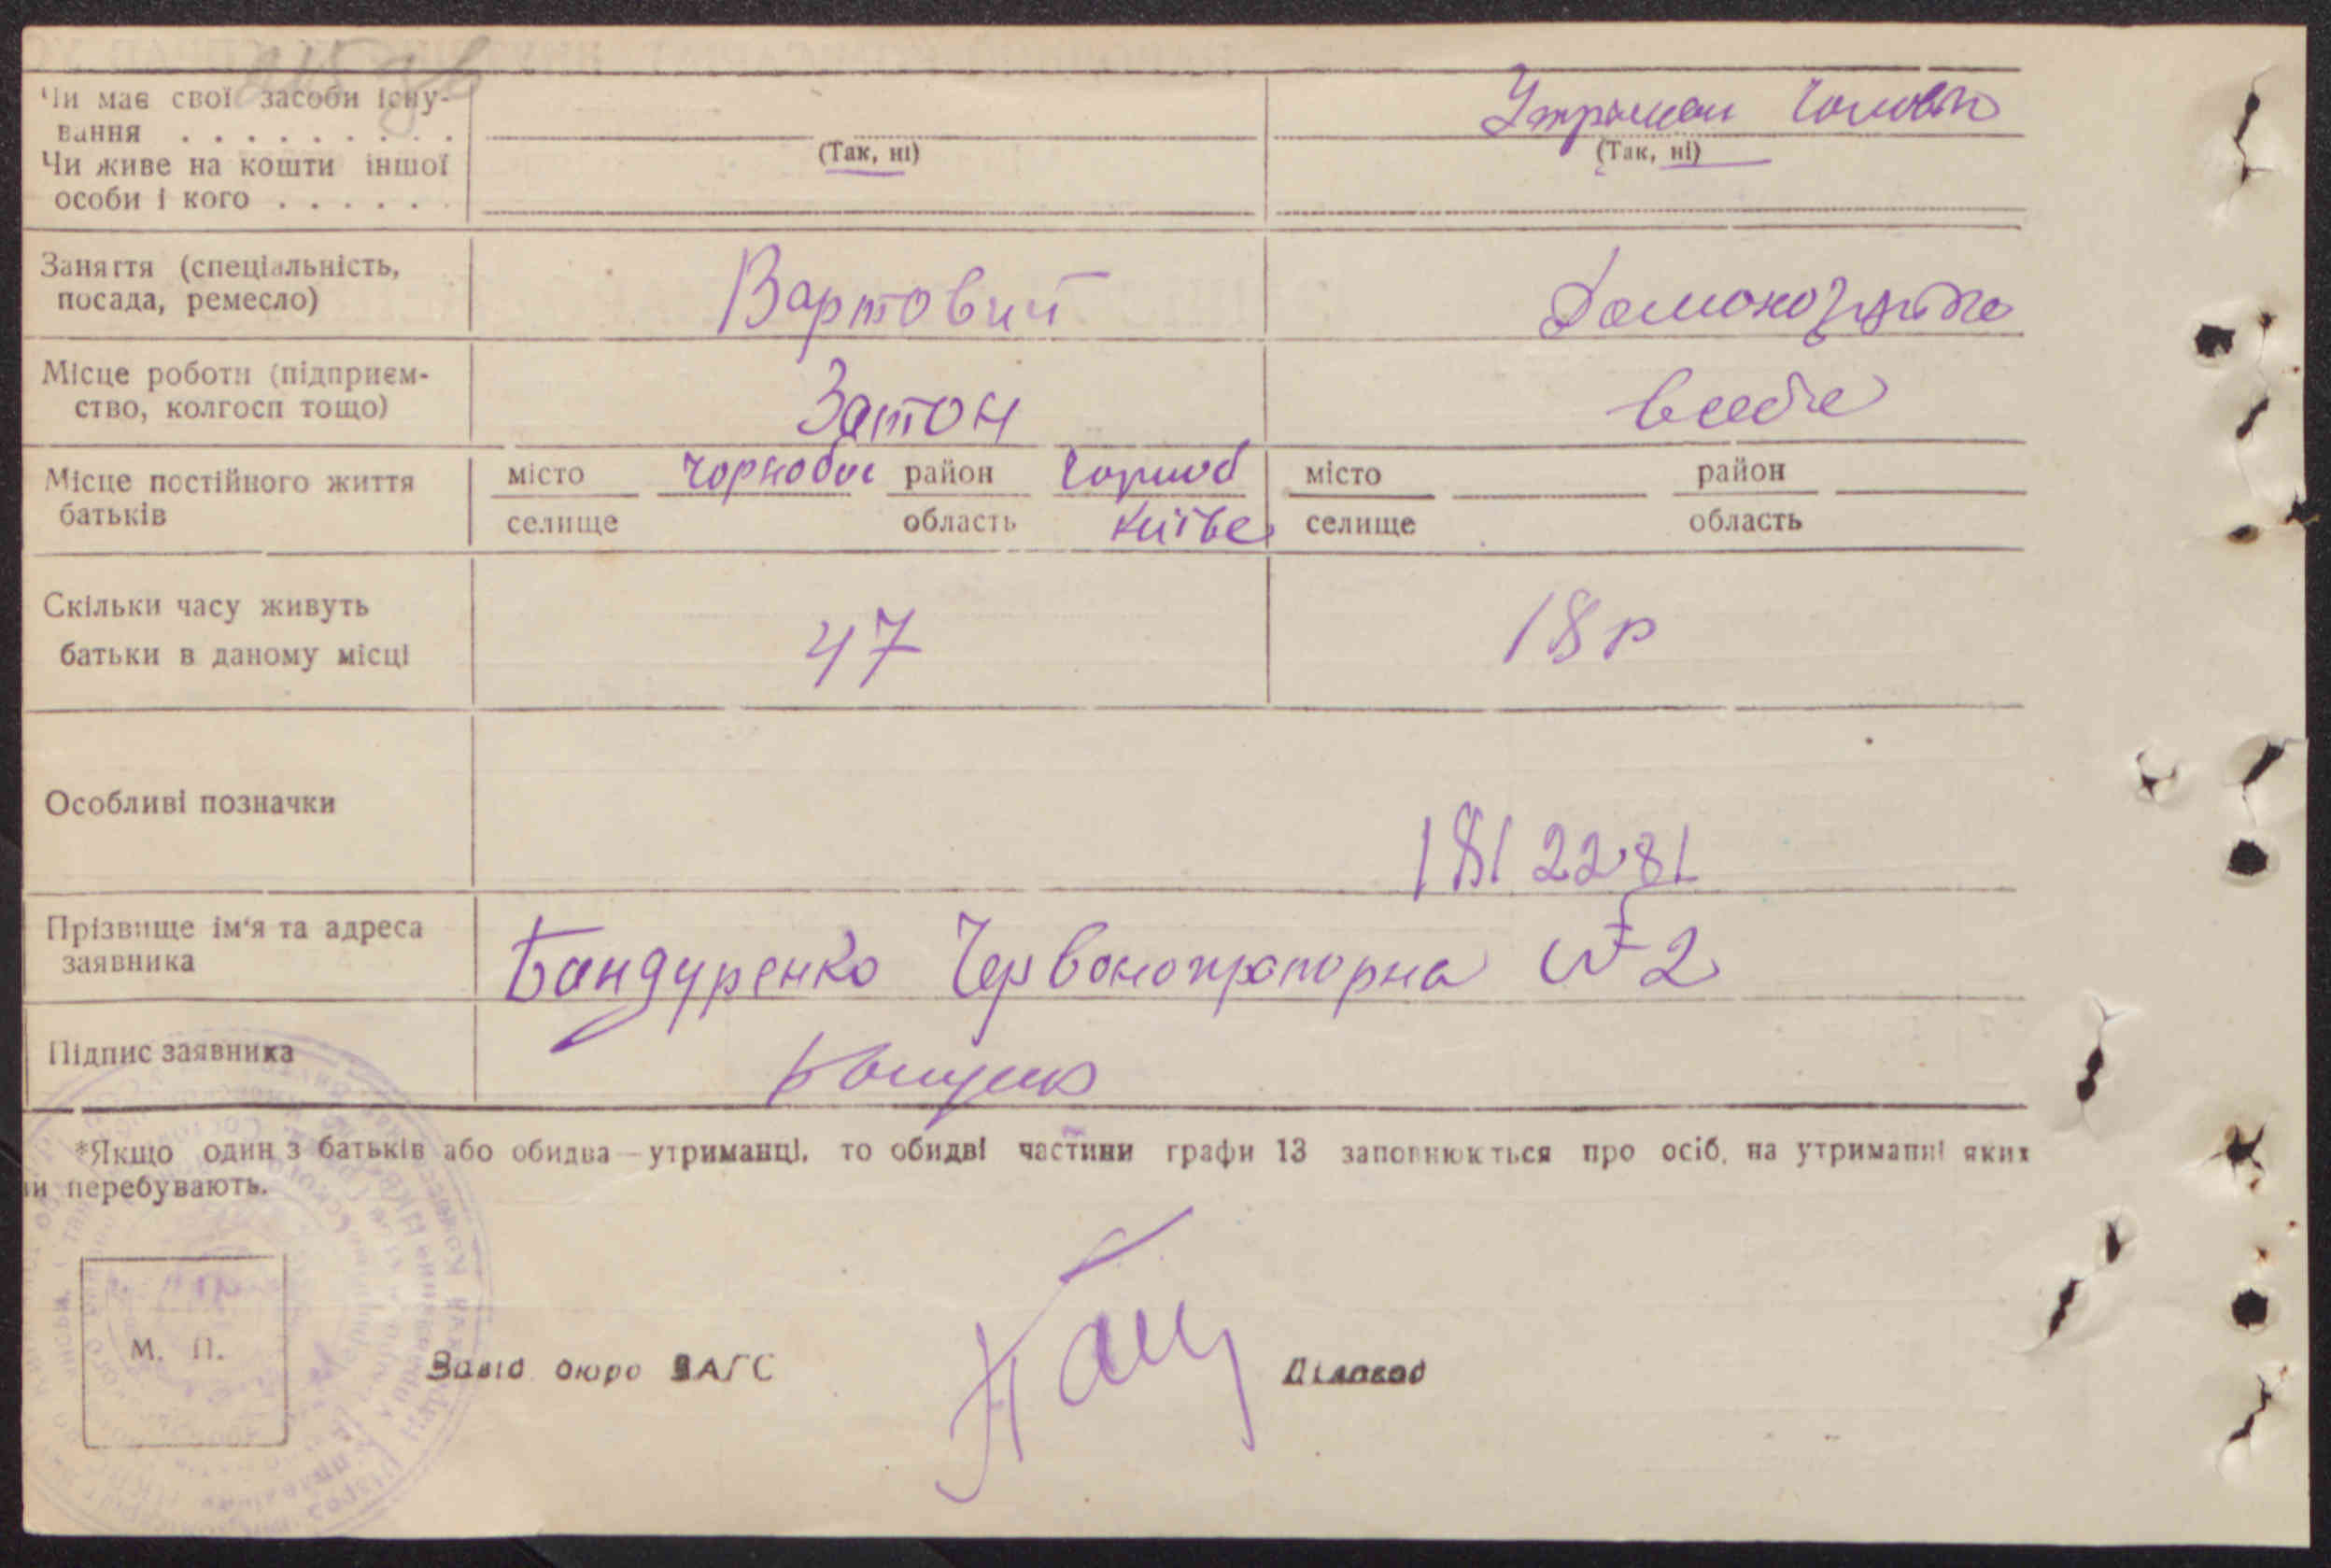 Чи має свої засоби існу-
вання . . . . . . . . .
(Так, ні)
(Так, ні)
Чи живе на кошти іншої
особи і кого . . . . . .
Заняття (спеціальність,
посада, ремесло)
Вартовий
Домохозяйка
Місце роботи (підприєм-
ство, колгосп тощо)
Затон
вдома
Місце постійного життя
батьків
місто Чорнобиль район Чорноб
селище область Київс
місто район
селище область
Скільки часу живуть
батьки в даному місці
47
18 р
Особливі позначки
Прізвище ім'я та адреса
заявника
Бандуренко Червонопрапорна № 2
Підпис заявника
*Якщо один з батьків або обидва — утриманці, то обидві частини графи 13 заповнюються про осіб, на утриманні яких
и перебувають.
М. П.
Завід бюро ЗАГС
Діловод